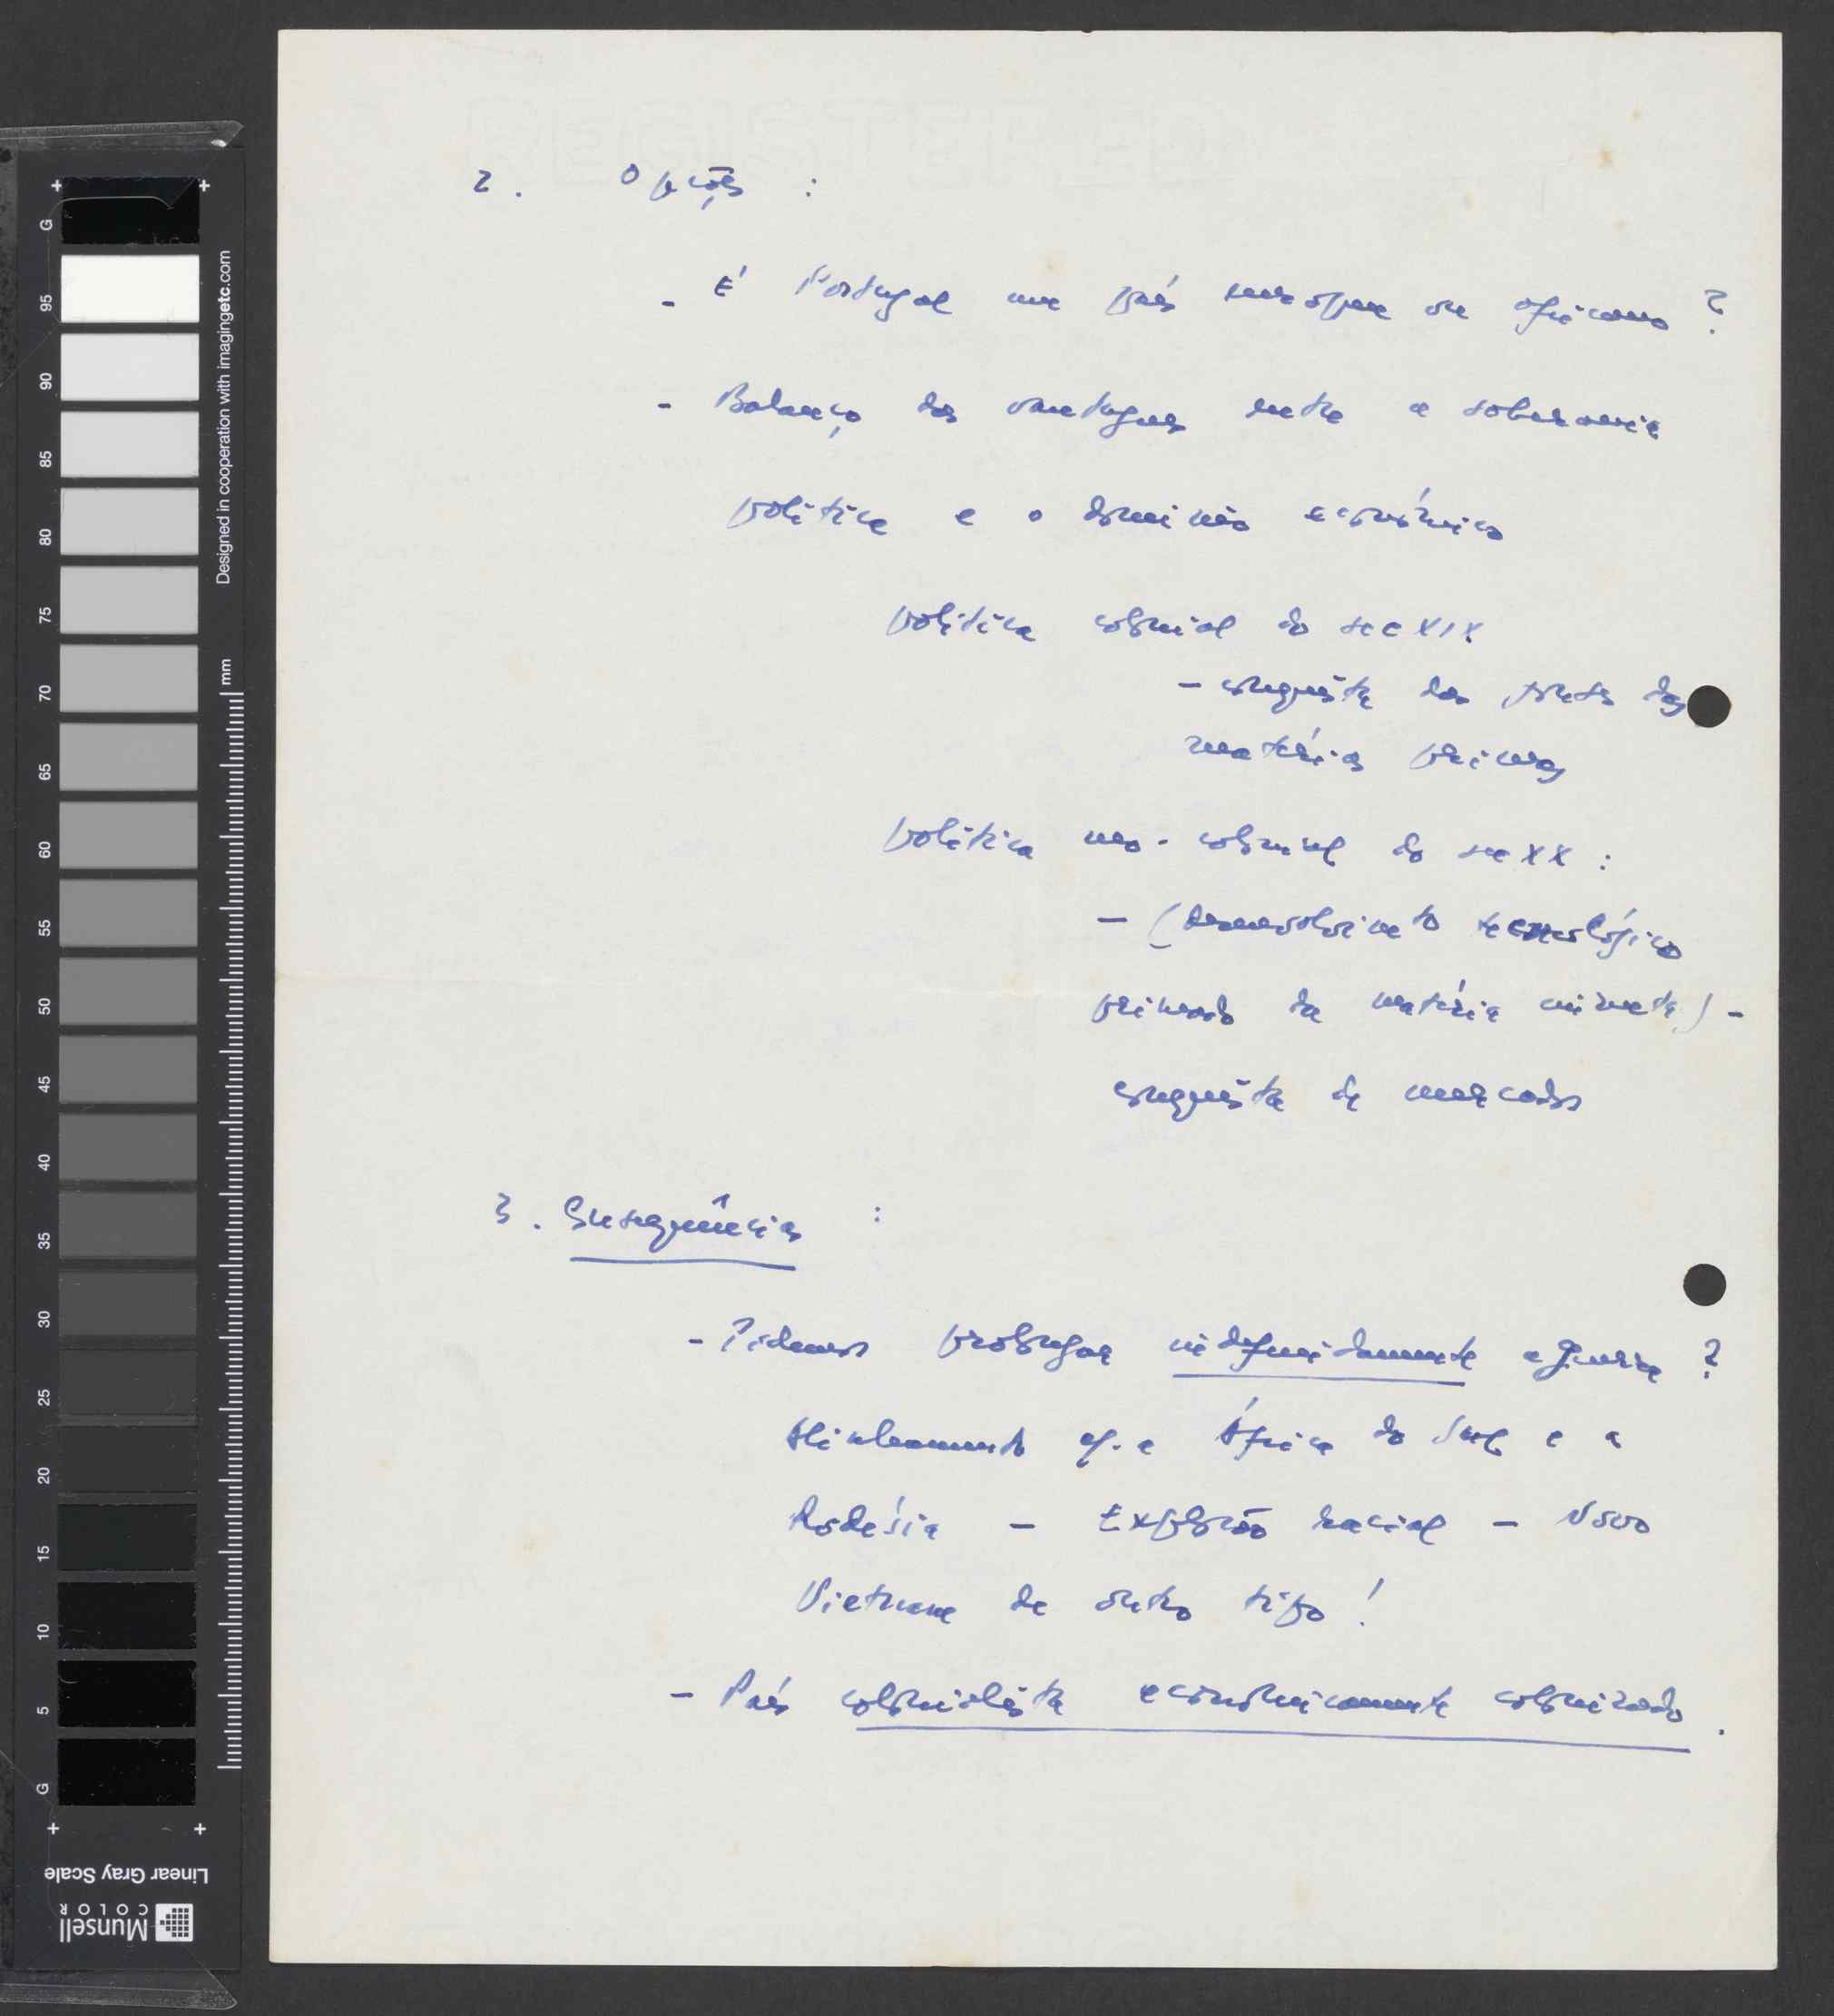 2. Opções :
- É Portugal um país europeu ou africano ?
- Balanço das vantagens entre a soberania
política e o domínio económico
política colonial do sec XIX
- conquista das fontes das
matérias primas
política neo-colonial do sec XX :
- (desenvolvimento tecnológico
primado da matéria cinzenta) -
conquista de mercados
3. Consequências :
- Podemos prolongar indefinidamente a guerra ?
Alinhamento c/. a África do Sul e a
Rodésia - Explosão racial - Novo
Vietname de outro tipo !
- País colonialista economicamente colonizado.
Designed in cooperation with imagingetc.com
mm
G 95 90 85 80 75 70 65 60 55 50 45 40 35 30 25 20 15 10 5 G
Linear Gray Scale
Munsell
COLOR